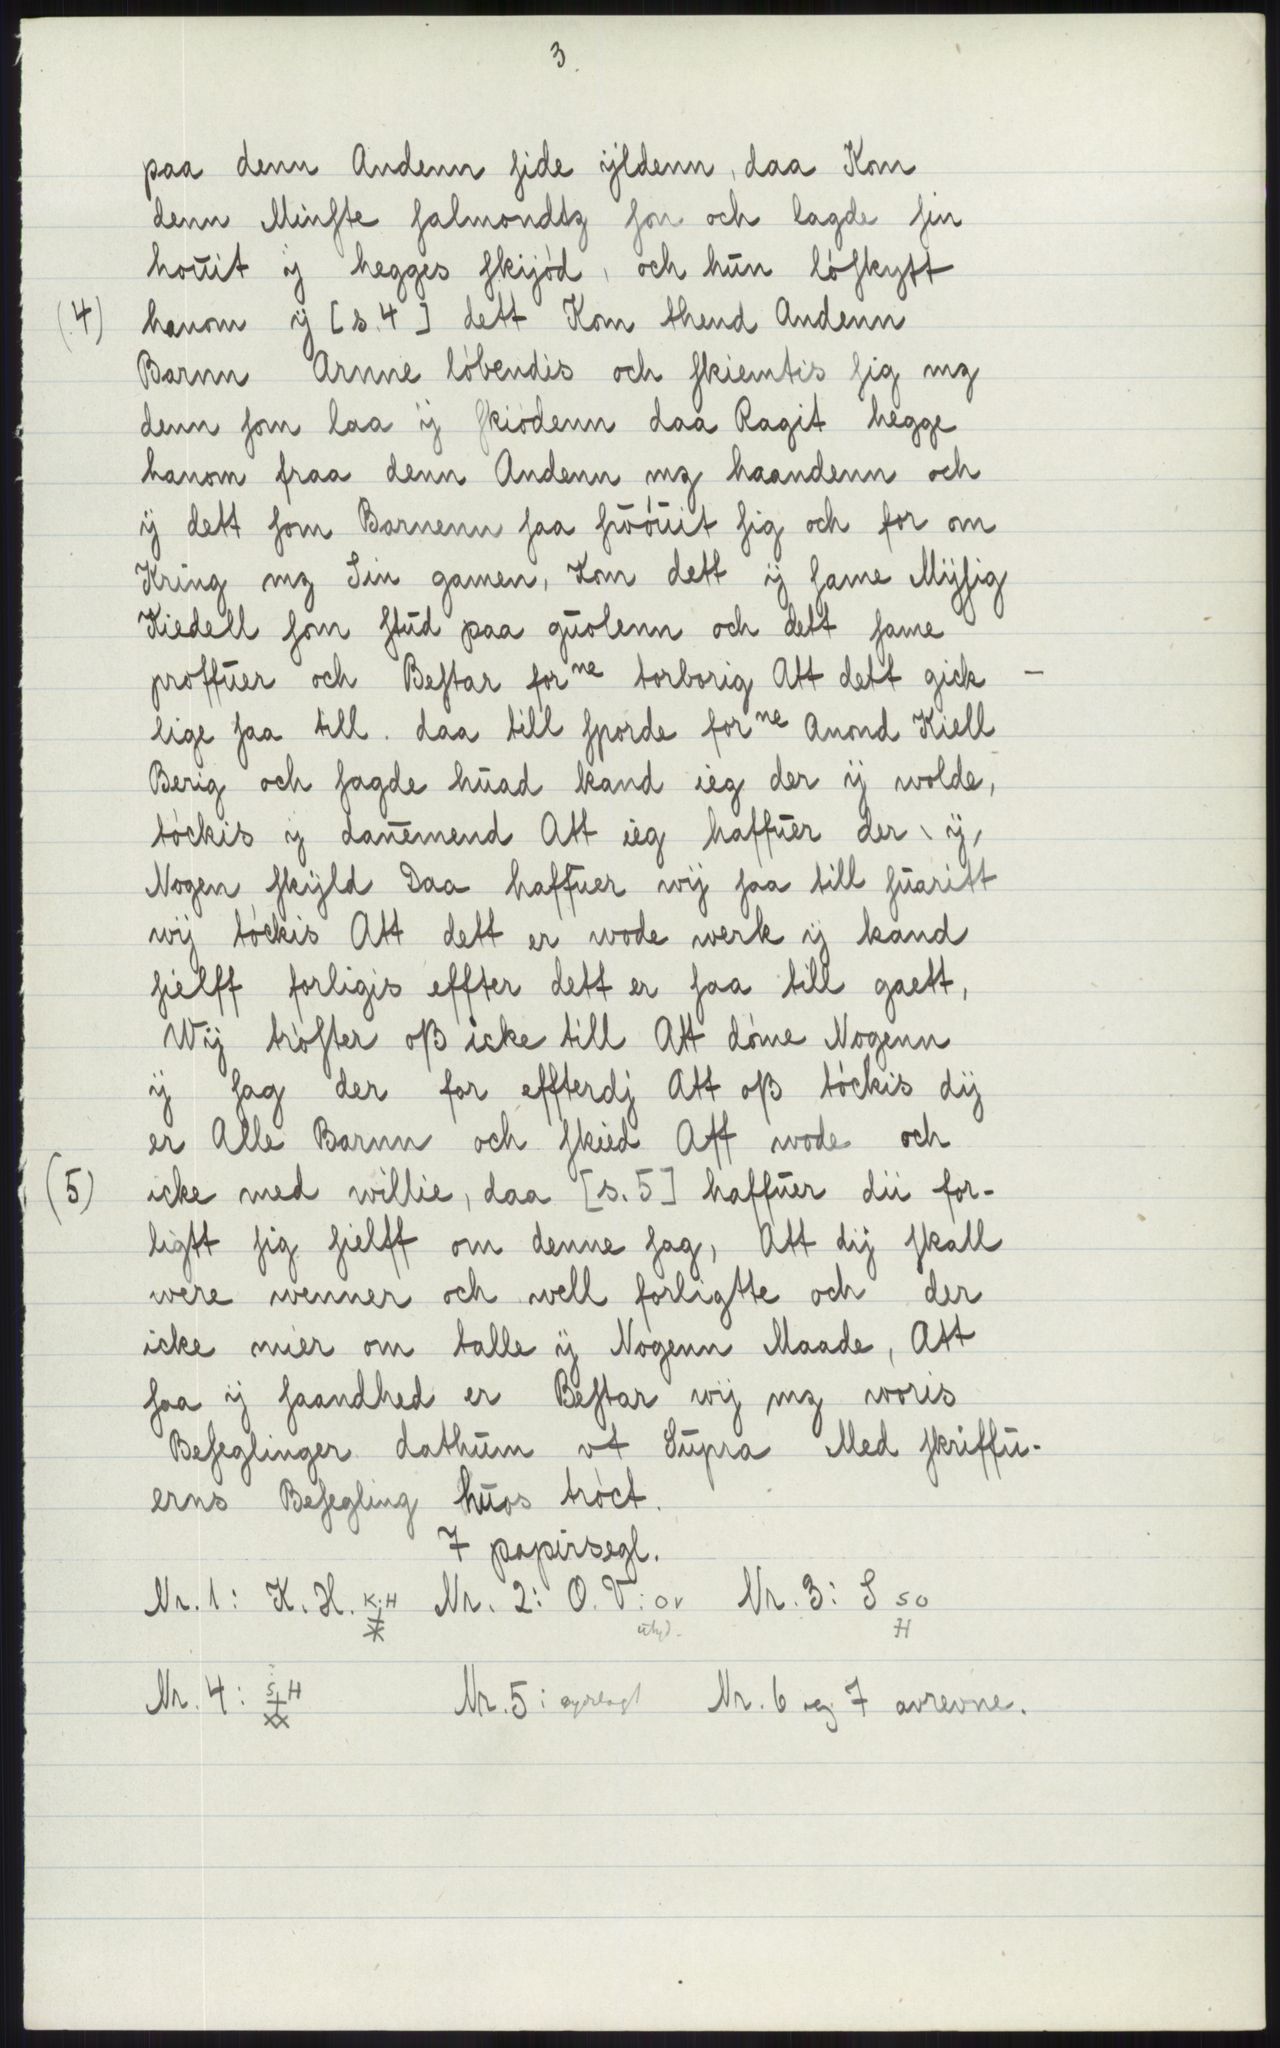 3
paa denn Andenn ſide ÿldenn, daa Kom
denn Minſte ſalmondtz ſon och lagde ſin
houit ÿ hegges ſkijód, och hun lóſkytt
(4) hanom ÿ [s. 4] dett Kom thend Andenn
Barnn Arnne lóbendis och ſkiemtis ſig mz
denn ſom laa ÿ ſkiódenn daa Ragit hegge
hanom fraa denn Andenn mz haandenn och
ÿ dett ſom Barnenn ſaa ſuóuit ſig och for om
Kring mz Sin gamen, Kom dett ÿ ſame Mÿſig
Kiedell ſom ſtud paa guolenn och dett ſame
próffuer och Beſtar forne torborig Att dett gick –
lige ſaa till. daa till ſporde forne Anond Kiell
Berig och ſagde huad kand ieg der ÿ wolde,
tóckis ÿ danemend Att ieg haffuer der ÿ,
Nogen ſkÿld Daa haffuer wÿ ſaa till ſuaritt
wÿ tóckis Att dett er wode werk ÿ kand
ſielff forligis effter dett er ſaa till gaett,
Wÿ tróſter oß icke till Att dóme Nogenn
ÿ ſag der for effterdj Att oß tóckis dÿ
er Alle Barnn och ſkied Aff wode och
(5) icke med willie, daa [s. 5] haffuer dii for-
ligtt ſig ſielff om denne ſag, Att dÿ ſkall
were wenner och well forligtte och der
icke mier om talle ÿ Nogenn Maade, Att
ſaa ÿ ſaandhed er Beſtar wÿ mz woris
Beſeglinger dathum vt Supra Med ſkriffu-
erns Beſegling huos tróct.
7 papirsegl.
Nr. 1: K. H. K H Nr. 2: O. V: OV Nr. 3: S S O H
Nr. 4: S H Nr. 5: Nr. 6 og 7 avrevne.